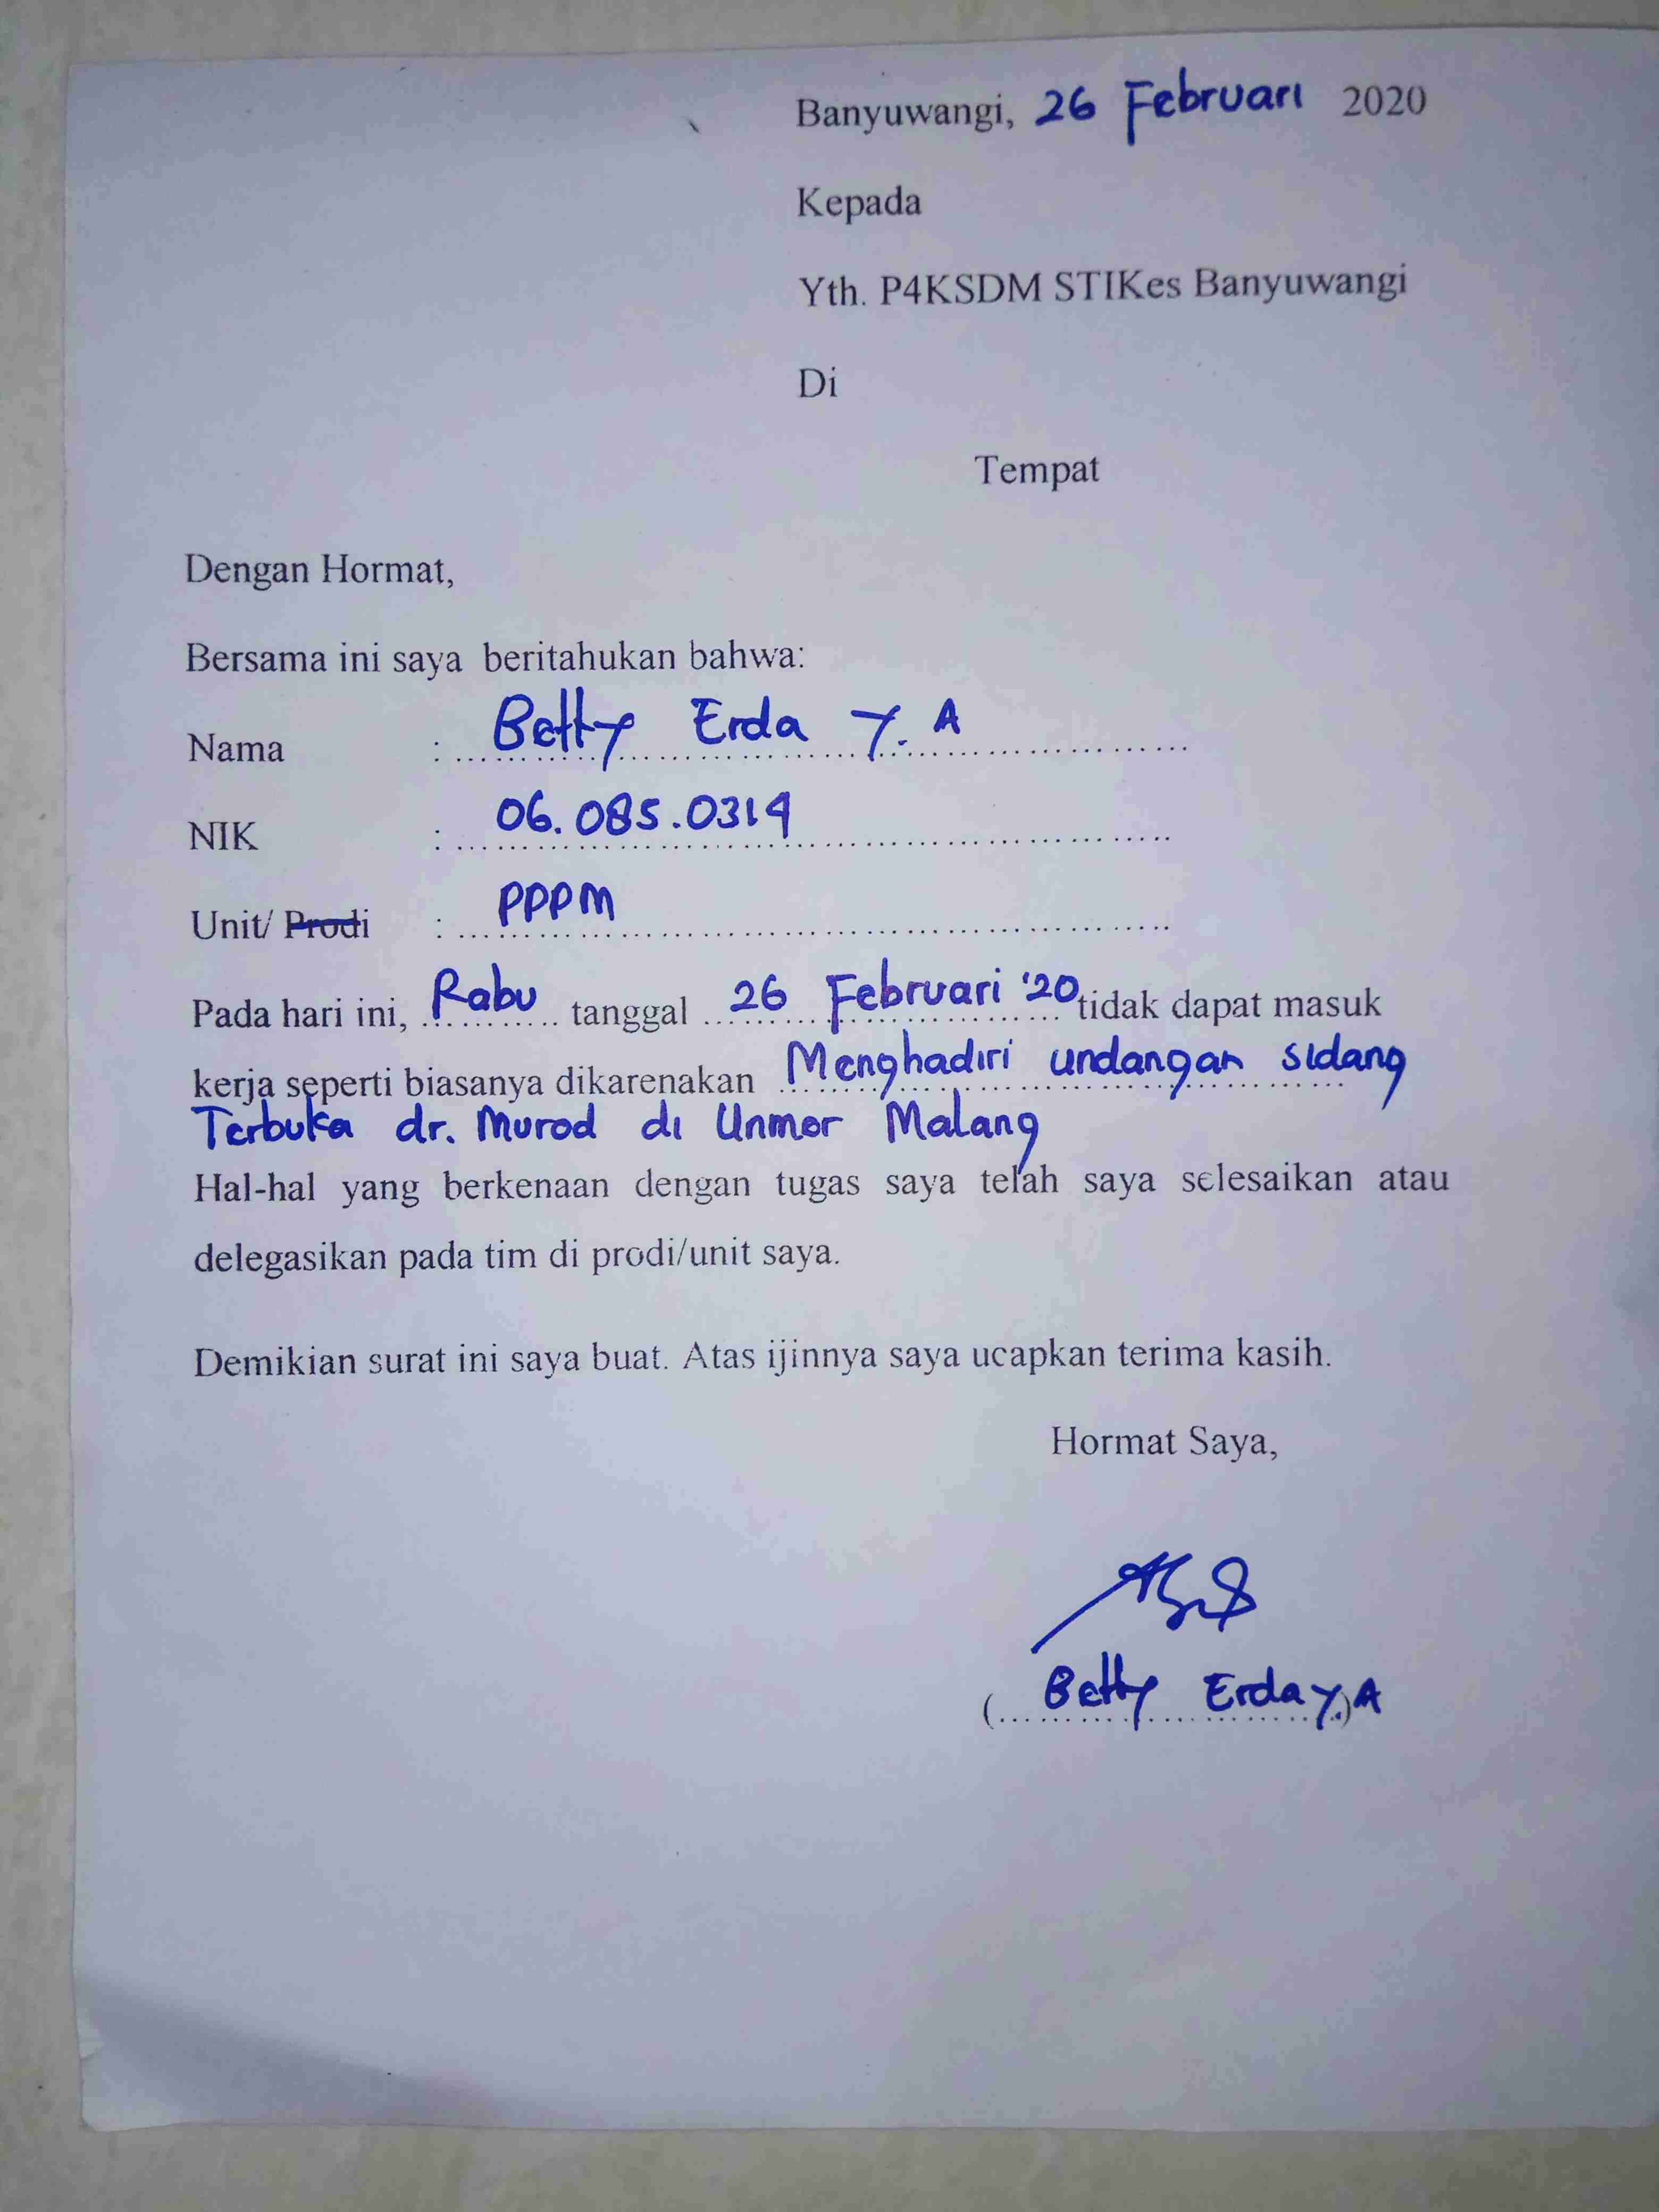 Banyuwangi, 26 Februari 2020
Kepada
Yth. P4KSDM STIKes Banyuwangi
Di
Tempat
Dengan Hormat,
Bersama ini saya beritahukan bahwa:
Nama : Betty Erda Y. A
NIK : 06.085.0314
Unit/ Prodi : PPPM
Pada hari ini, Rabu tanggal 26 Februari '20 tidak dapat masuk
kerja seperti biasanya dikarenakan Menghadiri undangan sidang
Terbuka dr. Murod di Unmer Malang
Hal-hal yang berkenaan dengan tugas saya telah saya selesaikan atau
delegasikan pada tim di prodi/unit saya.
Demikian surat ini saya buat. Atas ijinnya saya ucapkan terima kasih.
Hormat Saya,
(Betty Erda Y.) A